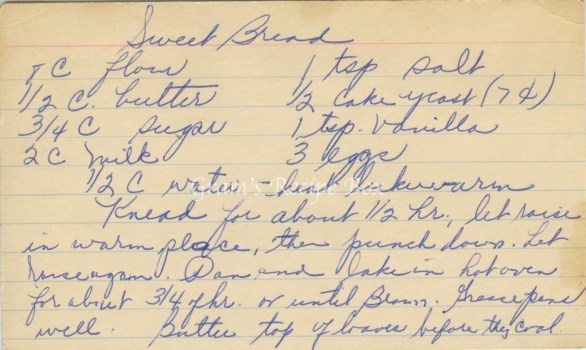 Sweet Bread
8 C flour 1 tsp salt
1/2 C. butter 1/2 cake yeast (7¢)
3/4 C sugar 1 tsp. Vanilla
2 C milk 3 eggs
1/2 C water - heat lukewarm
Knead for about 1/2 hr., let raise
in warm place, then punch down. Let
raise again. Pan and bake in hot oven
for about 3/4 of hr. or until Brown. Grease pans
well. Butter top of loaves before they cool.